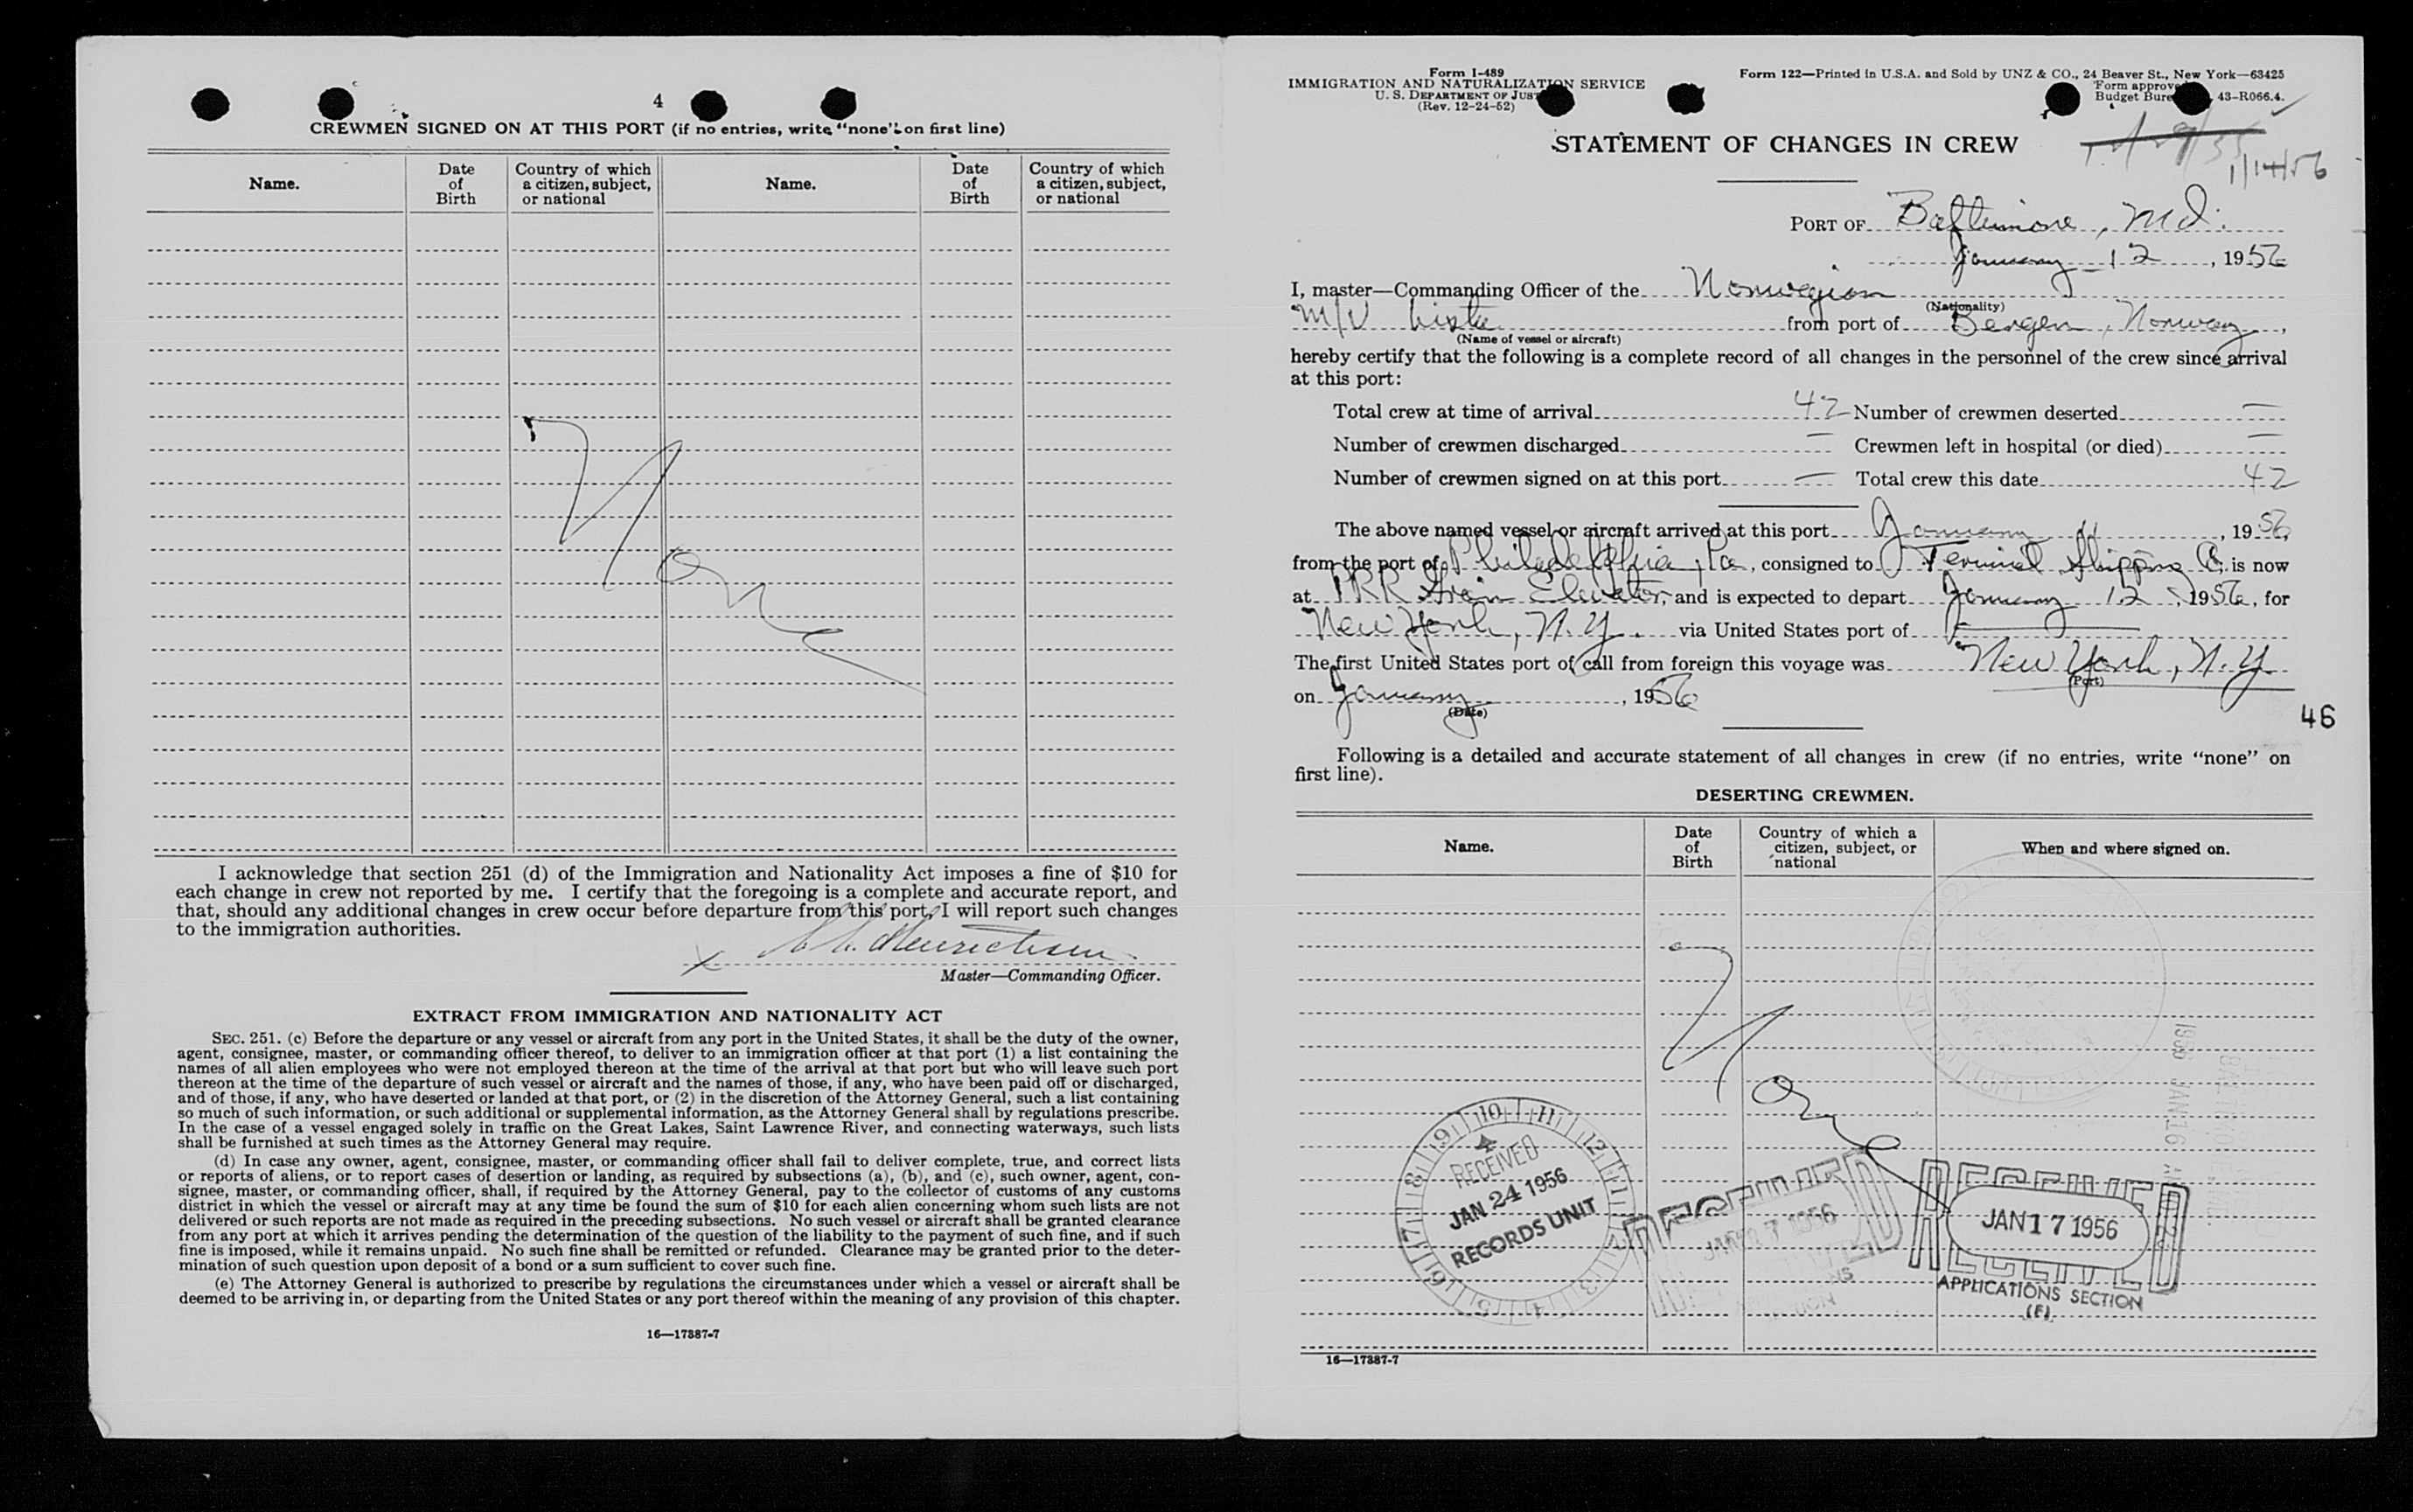 4
CREWMEN SIGNED ON AT THIS PORT (if no entries, write "none" on first line)
Name.
Date of Birth
Country of which a citizen, subject, or national
Name.
Date of Birth
Country of which a citizen, subject, or national
None
I acknowledge that section 251 (d) of the Immigration and Nationality Act imposes a fine of $10 for
each change in crew not reported by me. I certify that the foregoing is a complete and accurate report, and
that, should any additional changes in crew occur before departure from this port, I will report such changes
to the immigration authorities.
X
Master—Commanding Officer.
EXTRACT FROM IMMIGRATION AND NATIONALITY ACT
SEC. 251. (c) Before the departure or any vessel or aircraft from any port in the United States, it shall be the duty of the owner,
agent, consignee, master, or commanding officer thereof, to deliver to an immigration officer at that port (1) a list containing the
names of all alien employees who were not employed thereon at the time of the arrival at that port but who will leave such port
thereon at the time of the departure of such vessel or aircraft and the names of those, if any, who have been paid off or discharged,
and of those, if any, who have deserted or landed at that port, or (2) in the discretion of the Attorney General, such a list containing
so much of such information, or such additional or supplemental information, as the Attorney General shall by regulations prescribe.
In the case of a vessel engaged solely in traffic on the Great Lakes, Saint Lawrence River, and connecting waterways, such lists
shall be furnished at such times as the Attorney General may require.
(d) In case any owner, agent, consignee, master, or commanding officer shall fail to deliver complete, true, and correct lists
or reports of aliens, or to report cases of desertion or landing, as required by subsections (a), (b), and (c), such owner, agent, con-
signee, master, or commanding officer, shall, if required by the Attorney General, pay to the collector of customs of any customs
district in which the vessel or aircraft may at any time be found the sum of $10 for each alien concerning whom such lists are not
delivered or such reports are not made as required in the preceding subsections. No such vessel or aircraft shall be granted clearance
from any port at which it arrives pending the determination of the question of the liability to the payment of such fine, and if such
fine is imposed, while it remains unpaid. No such fine shall be remitted or refunded. Clearance may be granted prior to the deter-
mination of such question upon deposit of a bond or a sum sufficient to cover such fine.
(e) The Attorney General is authorized to prescribe by regulations the circumstances under which a vessel or aircraft shall be
deemed to be arriving in, or departing from the United States or any port thereof within the meaning of any provision of this chapter.
16—17887-7
Form I-489
IMMIGRATION AND NATURALIZATION SERVICE
U. S. DEPARTMENT OF JUST
(Rev. 12-24-52)
Form 122—Printed in U.S.A. and Sold by UNZ & CO., 24 Beaver St., New York—63425
Form approve
Budget Bure 43-R066.4.
STATEMENT OF CHANGES IN CREW
1/14/56
PORT OF Baltimore, Md.
January 12, 1956
I, master—Commanding Officer of the Norwegian
(Nationality)
M/V from port of Bergen, Norway,
(Name of vessel or aircraft)
hereby certify that the following is a complete record of all changes in the personnel of the crew since arrival
at this port:
Total crew at time of arrival 42 Number of crewmen deserted —
Number of crewmen discharged — Crewmen left in hospital (or died) —
Number of crewmen signed on at this port — Total crew this date 42
The above named vessel or aircraft arrived at this port January 11, 1956,
from the port of Philadelphia, Pa, consigned to Terminal Shipping Co, is now
at PRR Grain Elevator, and is expected to depart January 12, 1956, for
New York, N.Y. via United States port of —
The first United States port of call from foreign this voyage was New York, N.Y.
(Port)
on January, 1956
(Date)
46
Following is a detailed and accurate statement of all changes in crew (if no entries, write "none" on
first line).
DESERTING CREWMEN.
Name.
Date of Birth
Country of which a citizen, subject, or national
When and where signed on.
None
1956 JAN 16
RECEIVED
JAN 24 1956
RECORDS UNIT
RECEIVED
1956
RECEIVED
JAN 17 1956
RECEIVED
APPLICATIONS SECTION
(F)
16—17887-7